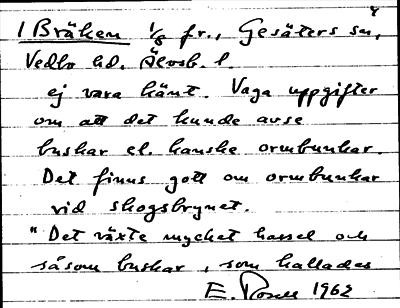 4
1 Bräken 1/8 fr., Gesäters sn,
Vedbo hd. Älvsb. l.
ej vara känt. Vaga uppgifter
om att det kunde avse
buskar el. kanske ormbunkar.
Det finns gott om ormbunkar
vid skogsbrynet.
"Det växte mycket hassel och
såsom buskar, som kallades
E. 1962